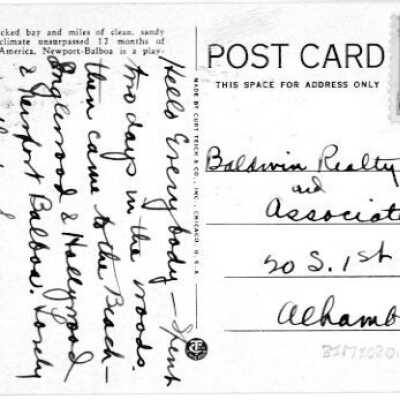 cked bay and miles of clean, sandy
climate unsurpassed 12 months of
America. Newport-Balboa is a play-
Hello Everybody — Spent
two days in the woods.
then came to the Beach —
Inglewood & Hollywood
& Newport Balboa. Lovely
MADE BY CURT TEICH & CO., INC., CHICAGO, U.S.A.
POST CARD
THIS SPACE FOR ADDRESS ONLY
Baldwin Realty
and
Associate
20 S. 1st
Alhamb